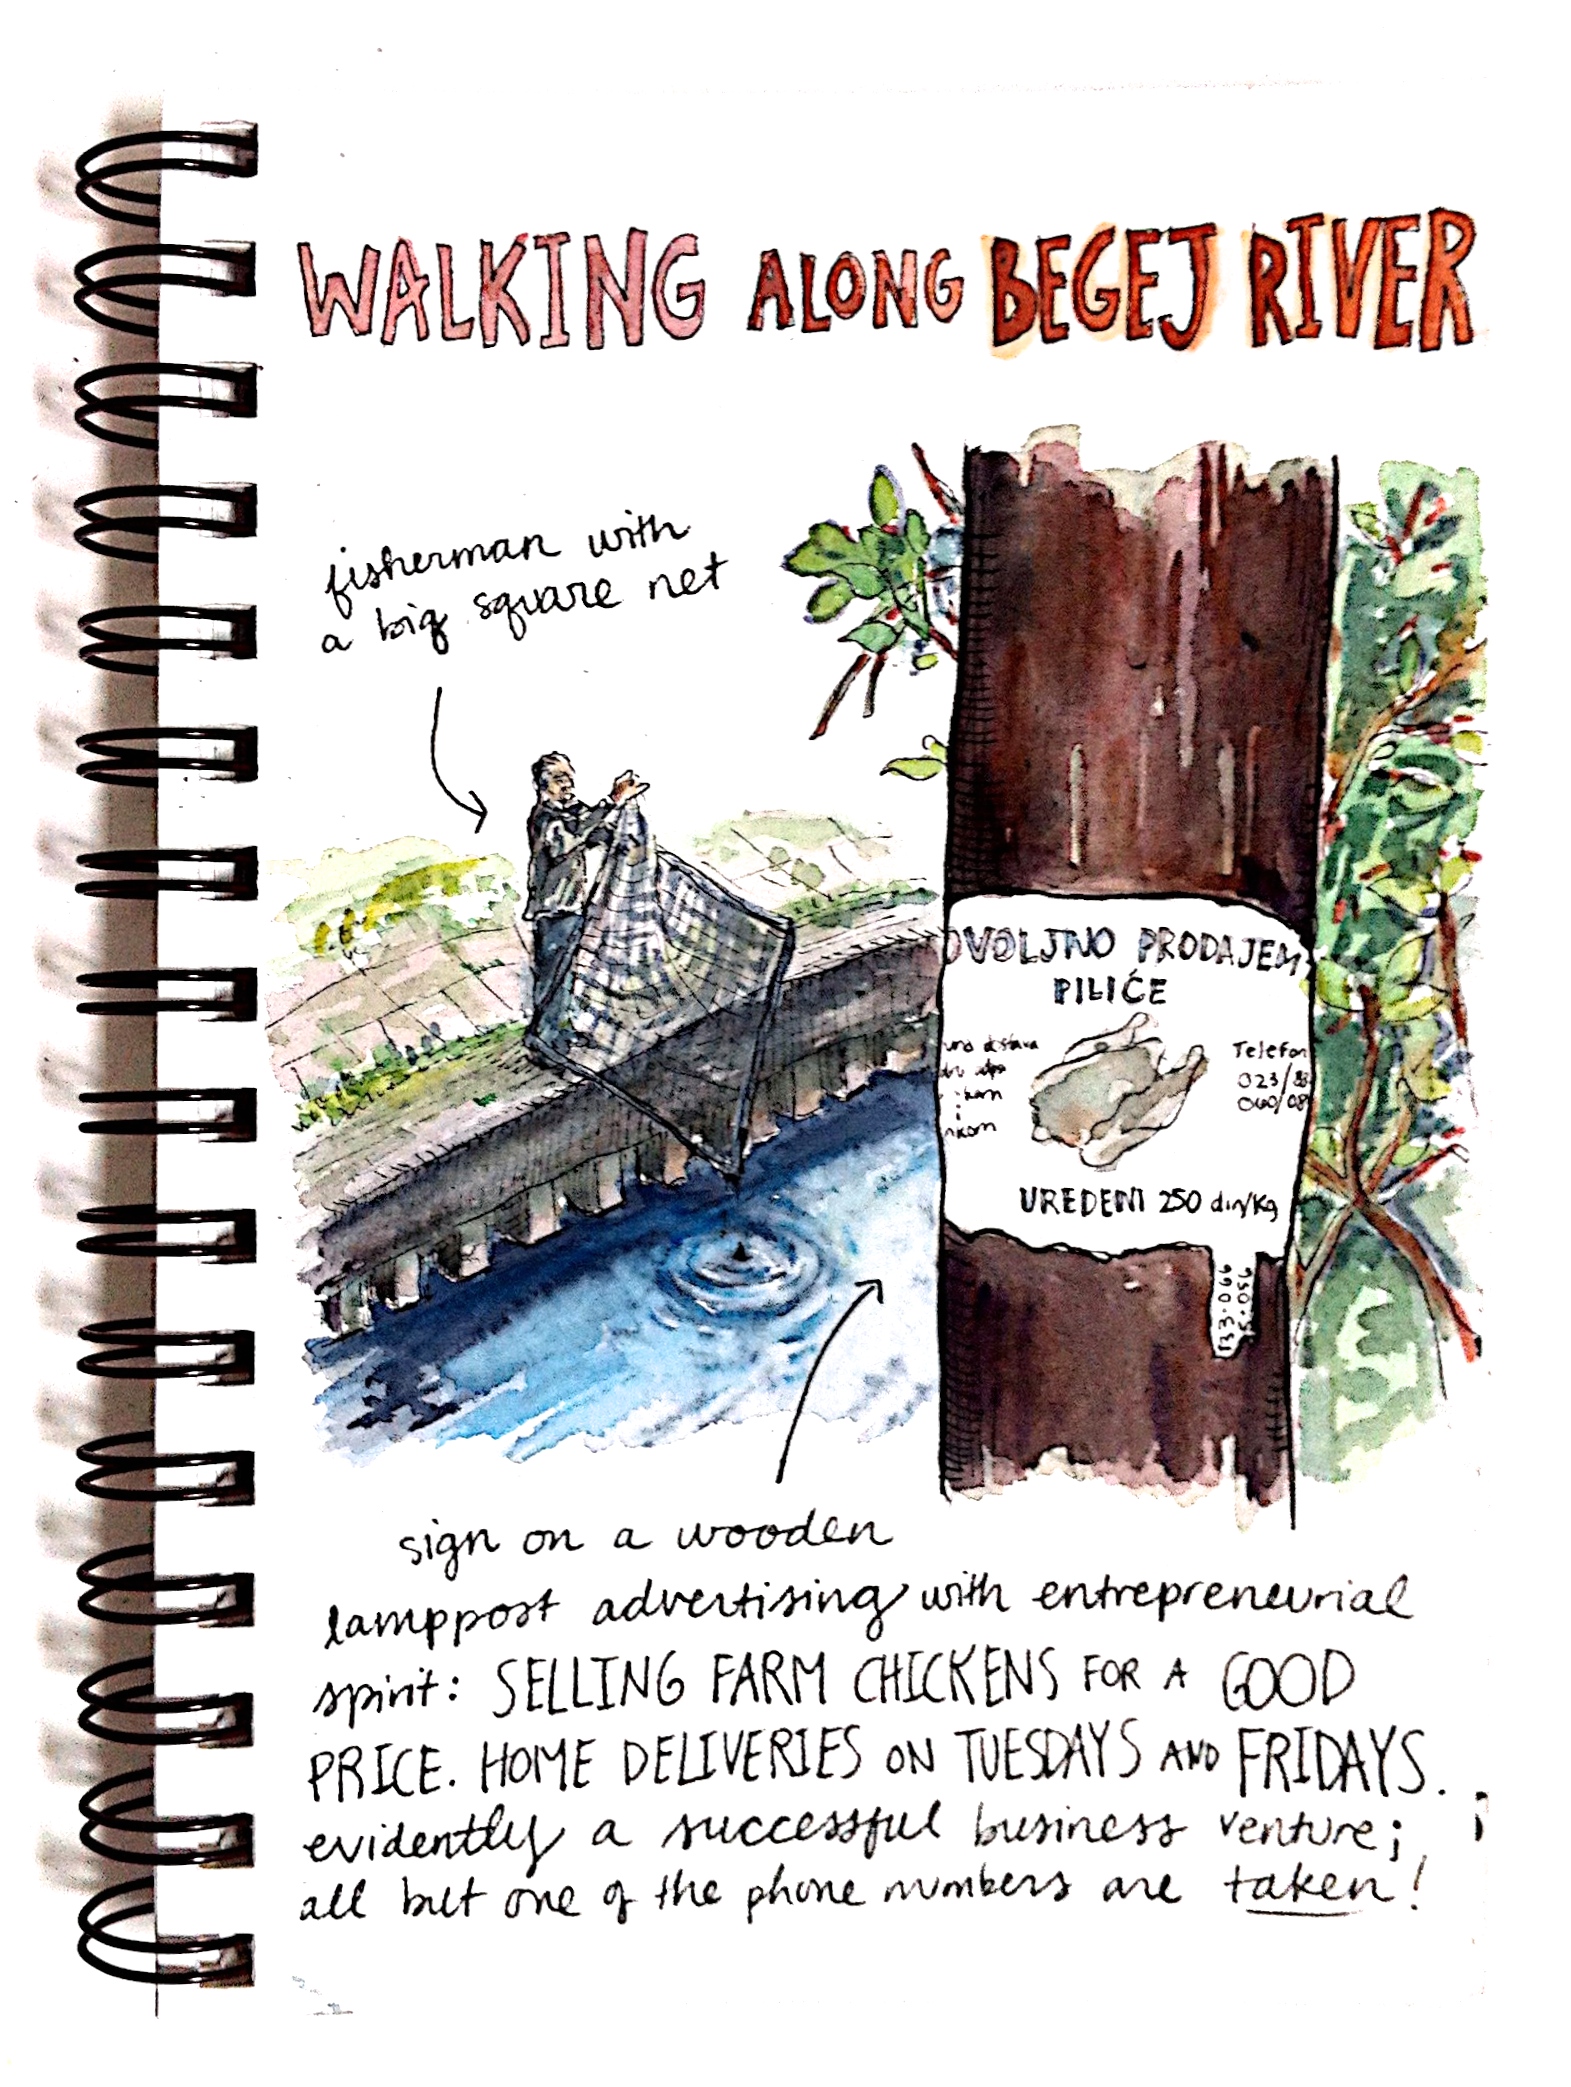 WALKING ALONG BEGEJ RIVER
fisherman with
a big square net
OVOLJNO PRODAJEM
PILIĆE
Telefon
023/
060/08
UREĐENI 250 din/kg
133-066
15-056
sign on a wooden
lamppost advertising with entrepreneurial
spirit: SELLING FARM CHICKENS FOR A GOOD
PRICE. HOME DELIVERIES ON TUESDAYS AND FRIDAYS.
evidently a successful business venture;
all but one of the phone numbers are taken!